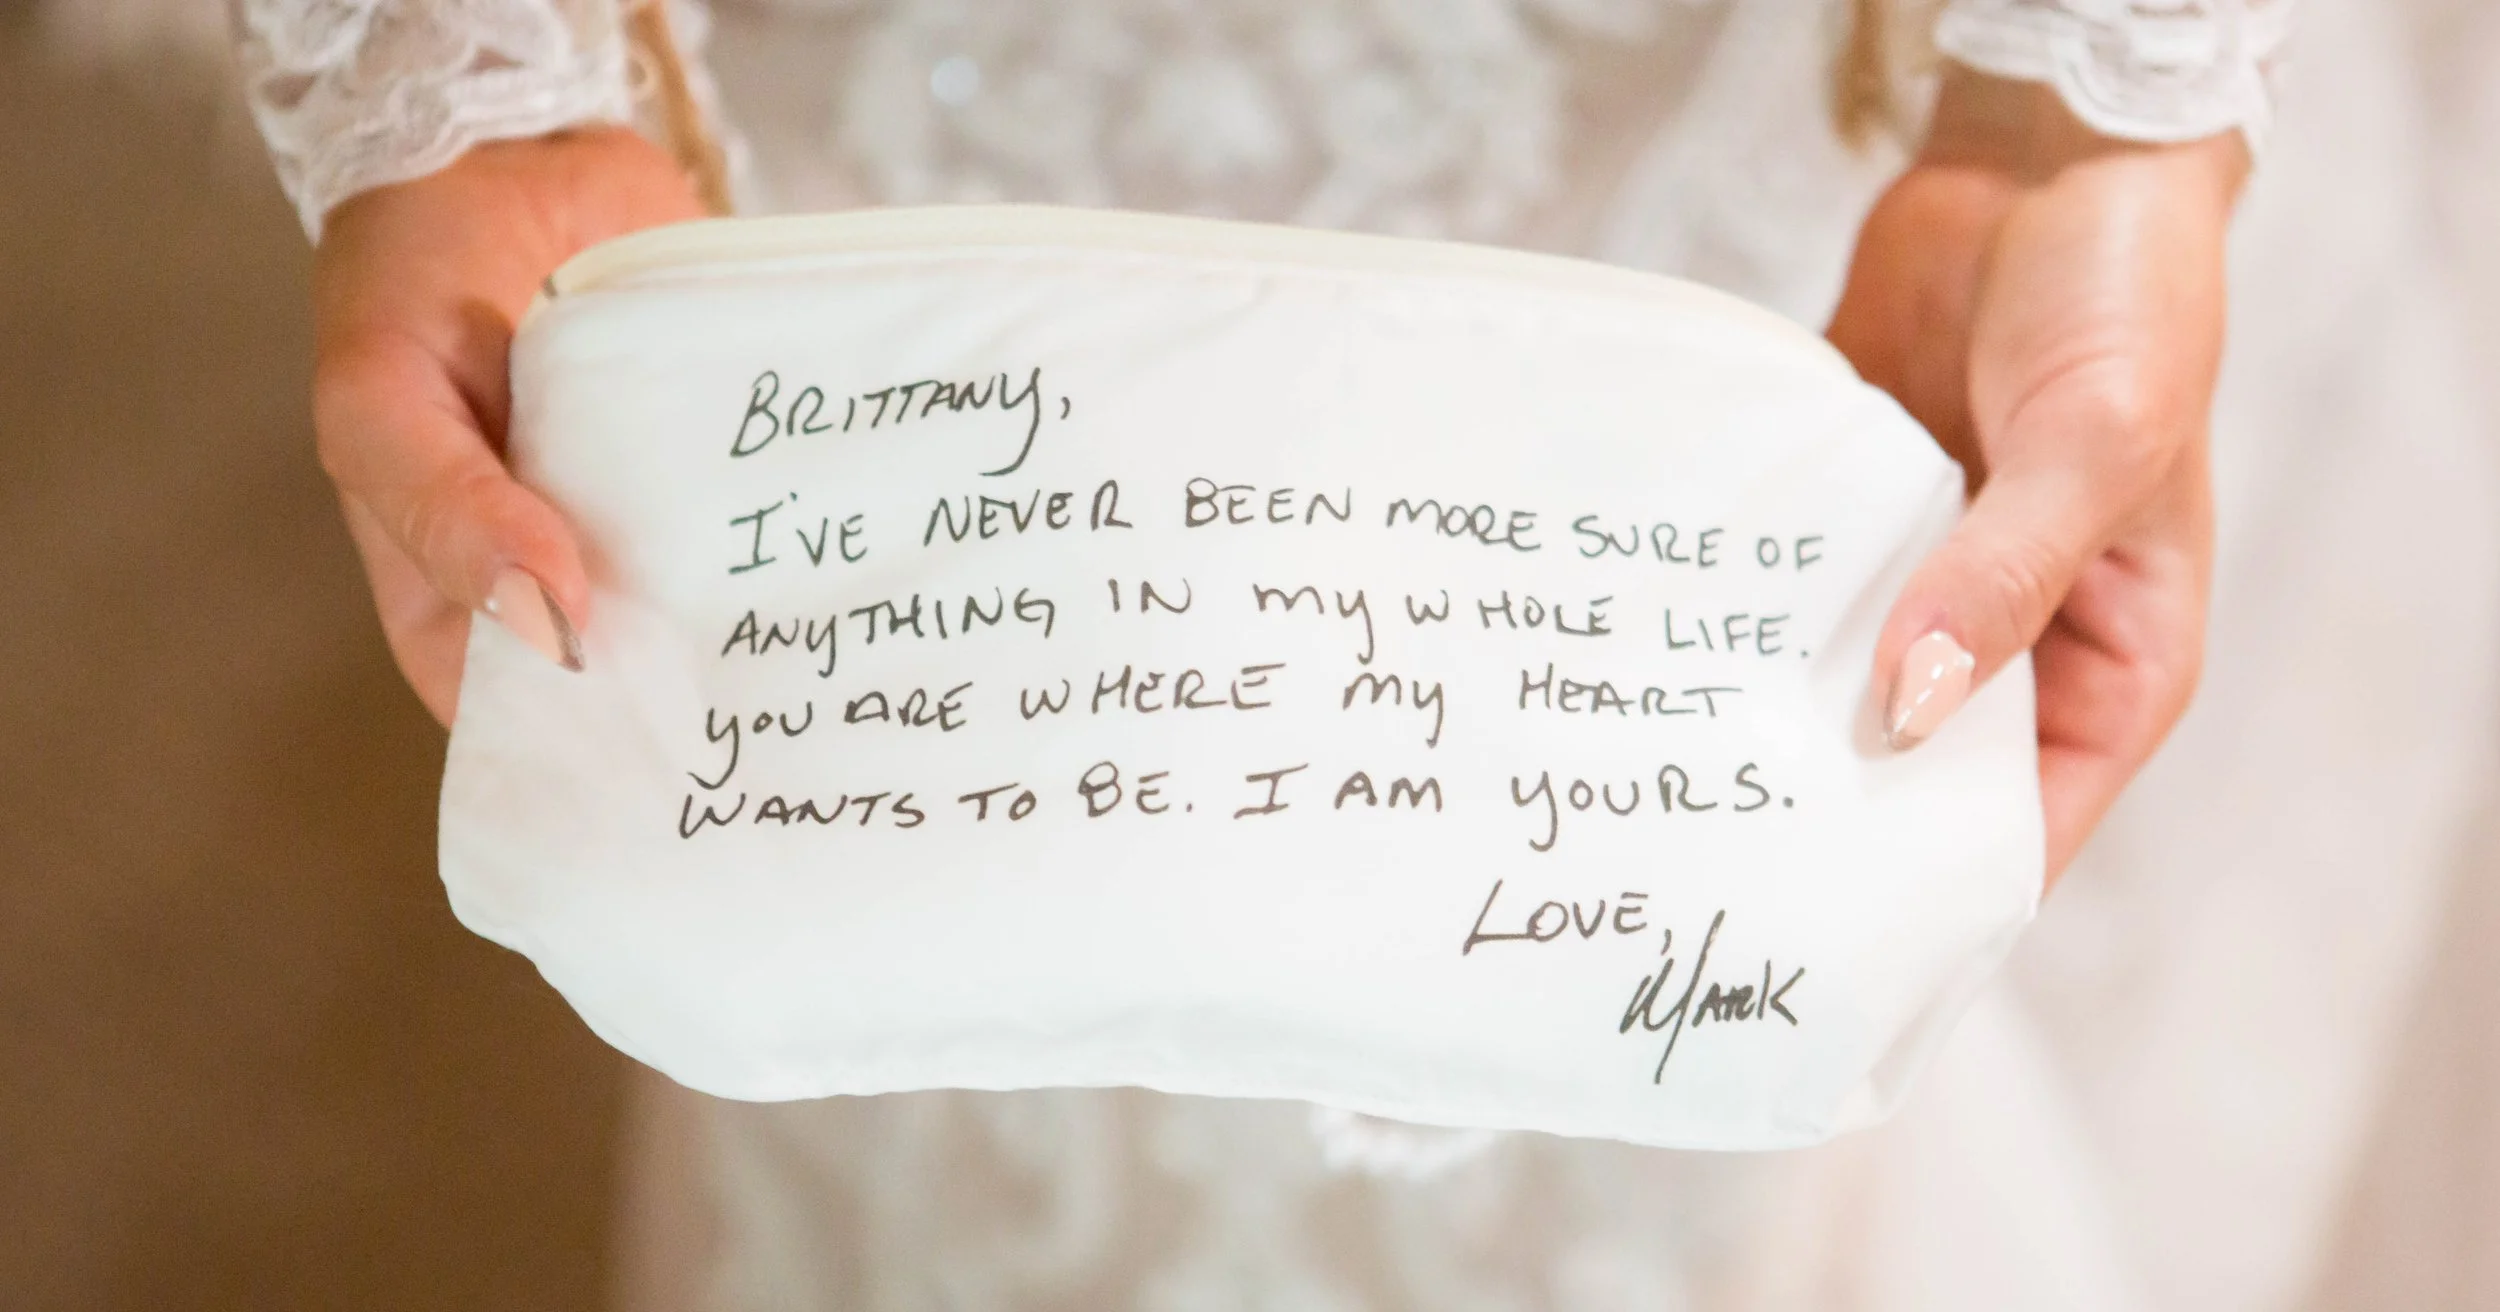 BRITTANY,
I'VE NEVER BEEN MORE SURE OF
ANYTHING IN MY WHOLE LIFE.
YOU ARE WHERE MY HEART
WANTS TO BE. I AM YOURS.
LOVE,
MARK